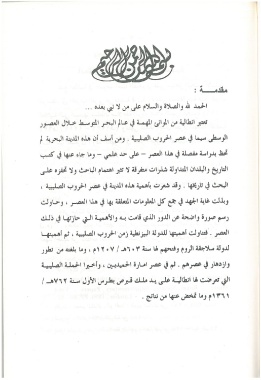 بسم الله الرحمن الرحيم
مقدمـــة :
الحمد لله والصلاة والسلام على من لا نبي بعده ...
تعتبر انطالية من الموانئ المهمة في عالم البحر المتوسط خلال العصور
الوسطى سيما في عصر الحروب الصليبية . ومن أسف أن هذه المدينة البحرية لم
تحظ بدراسة مفصلة في هذا العصر - على حد علمي - وما جاء عنها في كتب
التاريخ والبلدان المتداولة شذرات متفرقة لا تثير اهتمام الباحث ولا تحفزه على
البحث في تاريخها . وقد شعرت بأهمية هذه المدينة في عصر الحروب الصليبية ،
وبذلت غاية الجهد في جمع كل المعلومات المتعلقة بها في هذا العصر ، وحاولت
رسم صورة واضحة عن الدور الذي قامت به والأهمية التي حازتها في ذلك
العصر . فتناولت أهميتها للدولة البيزنطية زمن الحروب الصليبية ، ثم أهميتها
لدولة سلاجقة الروم وفتحهم لها سنة ٦٠٣هـ / ١٢٠٧م ، وما بلغته من تطور
وازدهار في عصرهم . ثم في عصر امارة الحميديين ، وأخيرا الحملة الصليبية
التي تعرضت لها انطالية على يد ملك قبرص بطرس الأول سنة ٧٦٢هـ /
١٣٦١م وما تمخض عنها من نتائج .